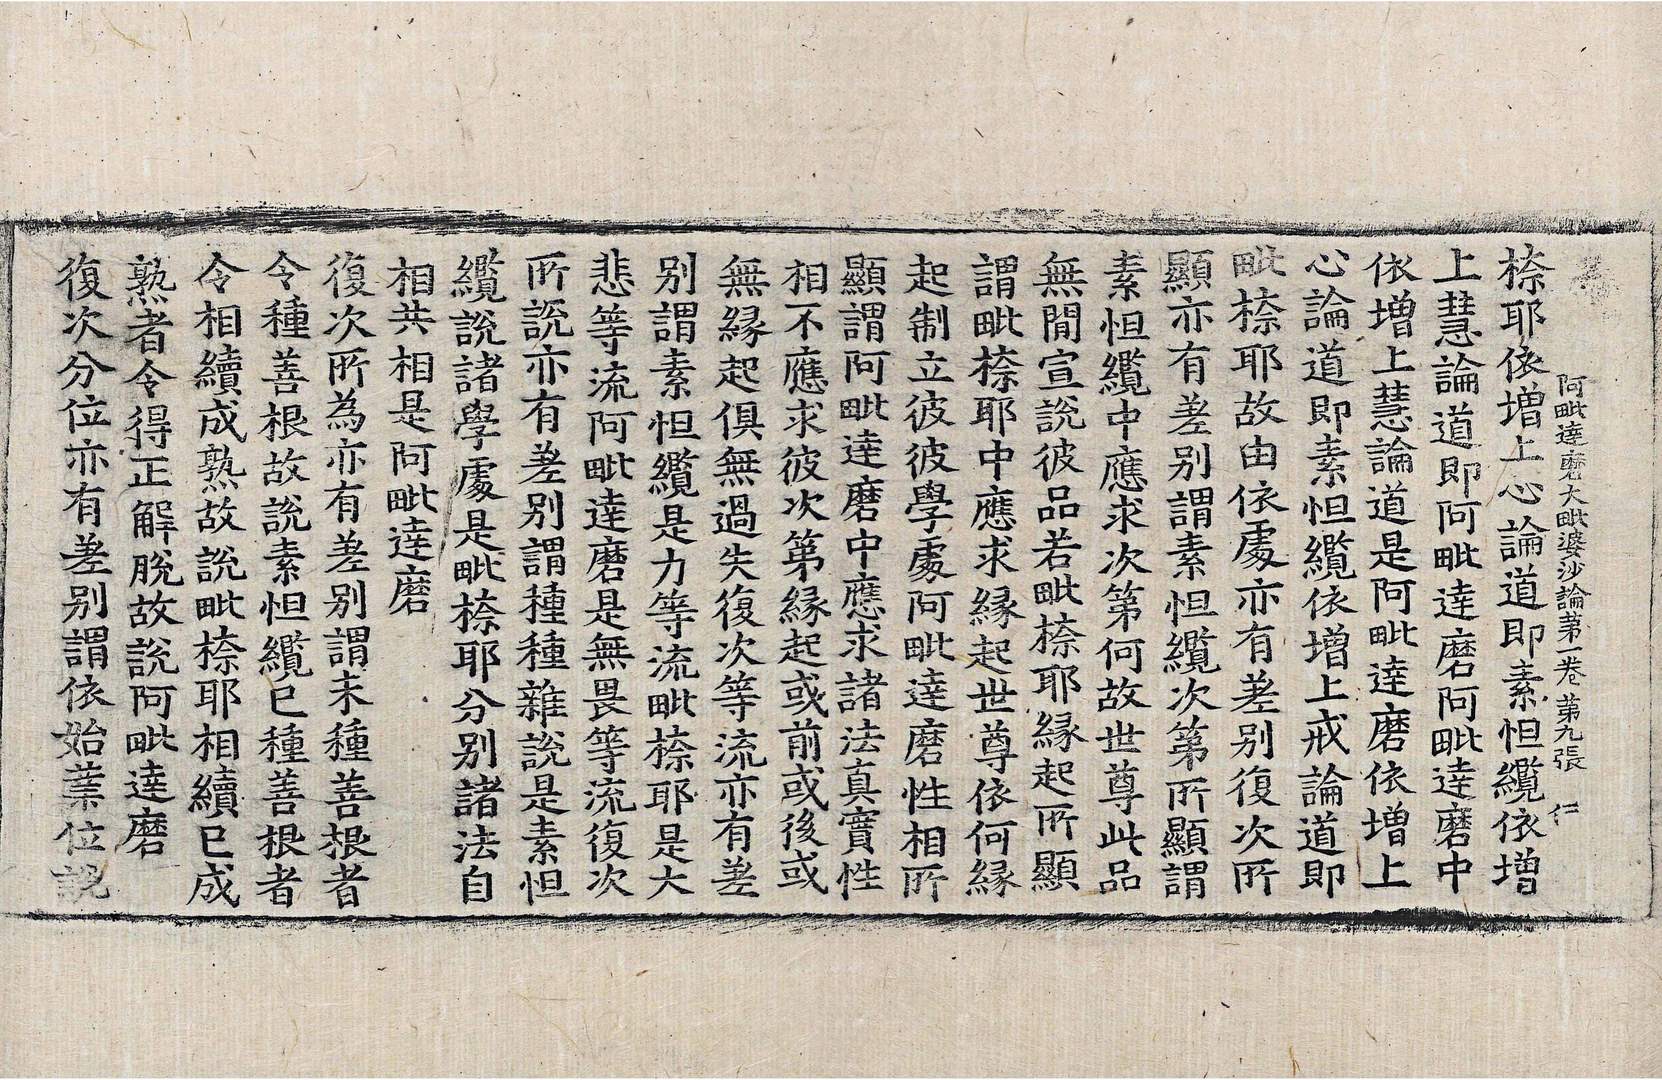 阿毗達磨大毗婆沙論第一卷 第九張 仁
柰耶依增上心論道即素怛纜依增
上慧論道即阿毗達磨阿毗達磨中
依增上慧論道是阿毗達磨依增上
心論道即素怛纜依增上戒論道即
毗柰耶故由依處亦有差別復次所
顯亦有差別謂素怛纜次第所顯謂
素怛纜中應求次第何故世尊此品
無閒宣說彼品若毗柰耶緣起所顯
謂毗柰耶中應求緣起世尊依何緣
起制立彼彼學處阿毗達磨性相所
顯謂阿毗達磨中應求諸法真實性
相不應求彼次第緣起或前或後或
無緣起俱無過失復次等流亦有差
別謂素怛纜是力等流毗柰耶是大
悲等流阿毗達磨是無畏等流復次
所說亦有差別謂種種雜說是素怛
纜說諸學處是毗柰耶分別諸法自
相共相是阿毗達磨
復次所為亦有差別謂未種善根者
令種善根故說素怛纜已種善根者
令相續成熟故說毗柰耶相續已成
熟者令得正解脫故說阿毗達磨
復次分位亦有差別謂依始業位說